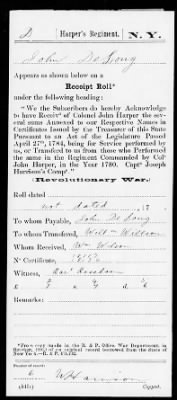 D Harper's Regiment. N.Y.
John De Long
Appears as shown below on a
Receipt Roll*
under the following heading:
"We the Subscribers do hereby Acknowledge
to have Receivd of Colonel John Harper the several
Sums Annexed to our Respective Names in
Certificates Issued by the Treasurer of this State
Pursuant to an Act of the Legislature Passed
April 27th, 1784, being for Service performed by
us, or Transfered to us from those who Performed
the same in the Regiment Commanded by Colo
John Harper, in the Year 1780. Capt Joseph
Harrison's Company."
(Revolutionary War.)
Roll dated
not dated, 17
To whom Payable, John De Long
To whom Transferred, Willm Willson
Whom Received, Wm Wilson
No Certificate,
Witness,
£
Remarks:
*From copy made in the R. & P. Office, War Department, in
of an original record borrowed from the State of
New York.—R. & P.
Harrison
Copyist.